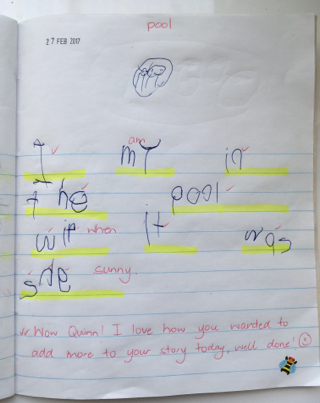 pool
27 FEB 2017
am
I my in
the pool
wip when It was
sde sunny.
Wow Quinn! I love how you wanted to
add more to your story today, well done!